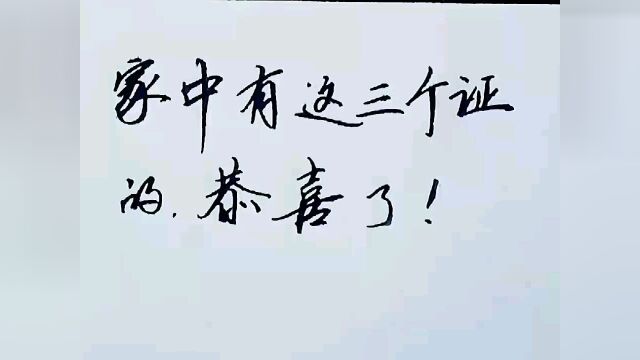 家中有这三个证
的.恭喜了!